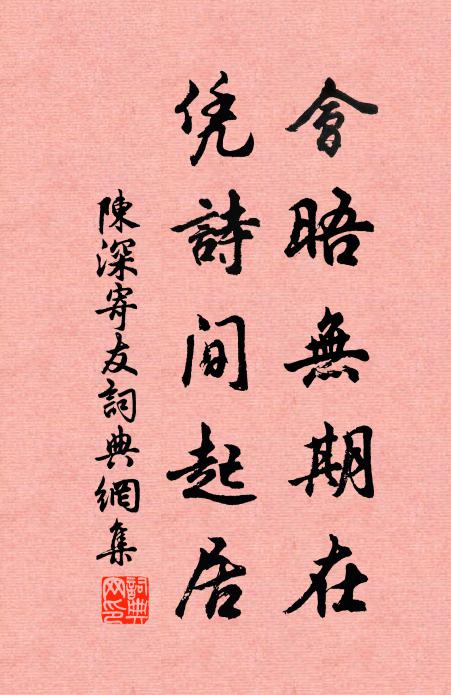 會晤無期在
凭詩間起居
陳深寄友詞典網集
詞典网印